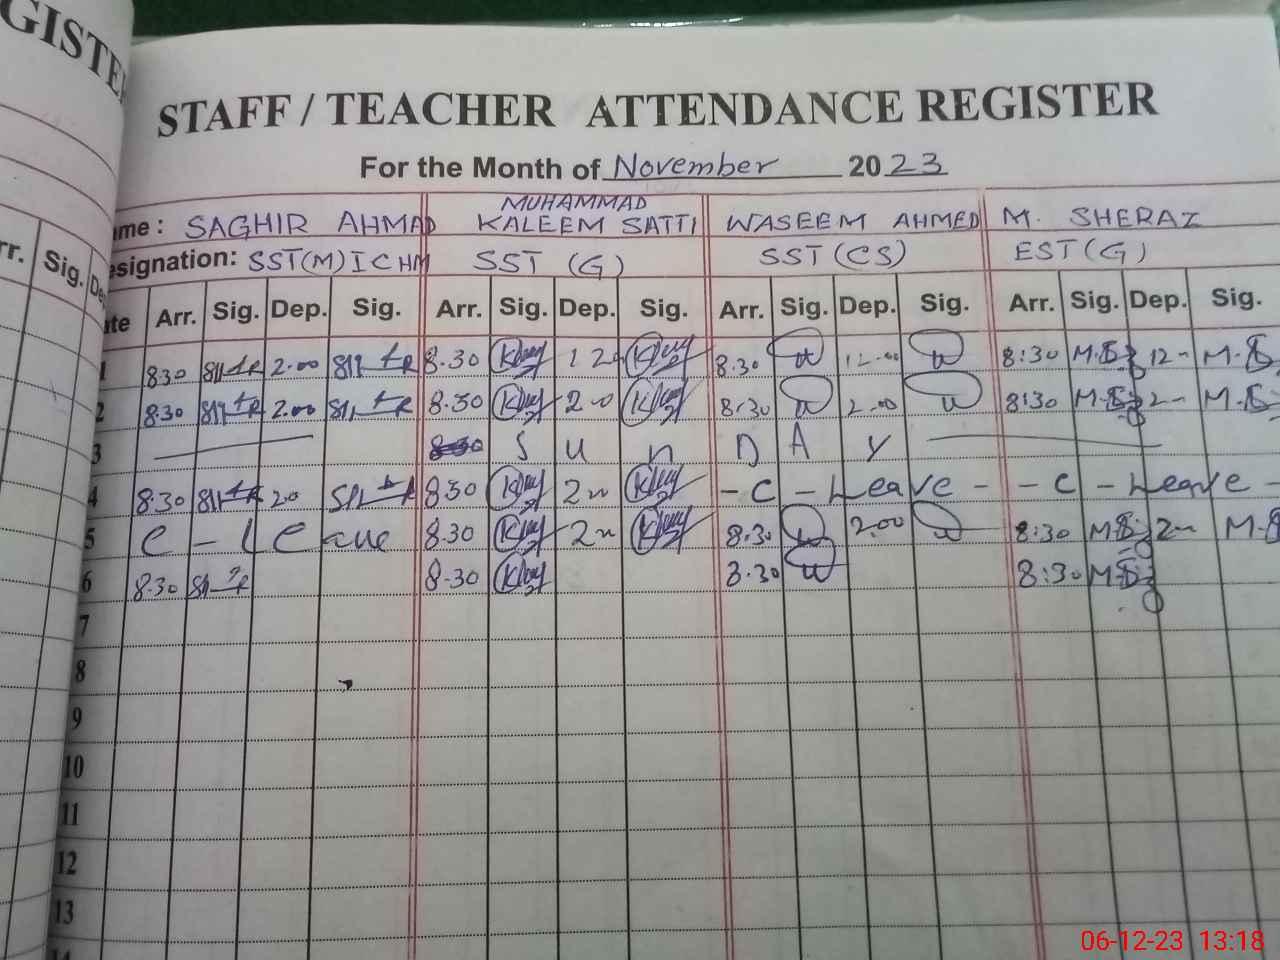 GISTE
STAFF / TEACHER ATTENDANCE REGISTER
For the Month of November 2023
ame : SAGHIR AHMAD MUHAMMAD KALEEM SATTI WASEEM AHMED M. SHERAZ
esignation: SST(M) ICHM SST (G) SST (CS) EST (G)
rr. Sig. De
ate Arr. Sig. Dep. Sig. Arr. Sig. Dep. Sig. Arr. Sig. Dep. Sig. Arr. Sig. Dep. Sig.
1 830 2.00 8.30 12 8.30 12.00 8:30 M.S 12 M.S
2 8.30 2.00 8.30 2 8:30 2.00 8:30 M.S 2 M.S
3 S u n D A y
4 8.30 20 830 2 - C - Leave - - C - Leave -
5 C - Leave 8.30 2 8.30 2.00 8:30 M.S 2 M.S
6 8.30 8.30 8.30 8:30 M.S
7
8
9
10
11
12
13
14
06-12-23 13:18